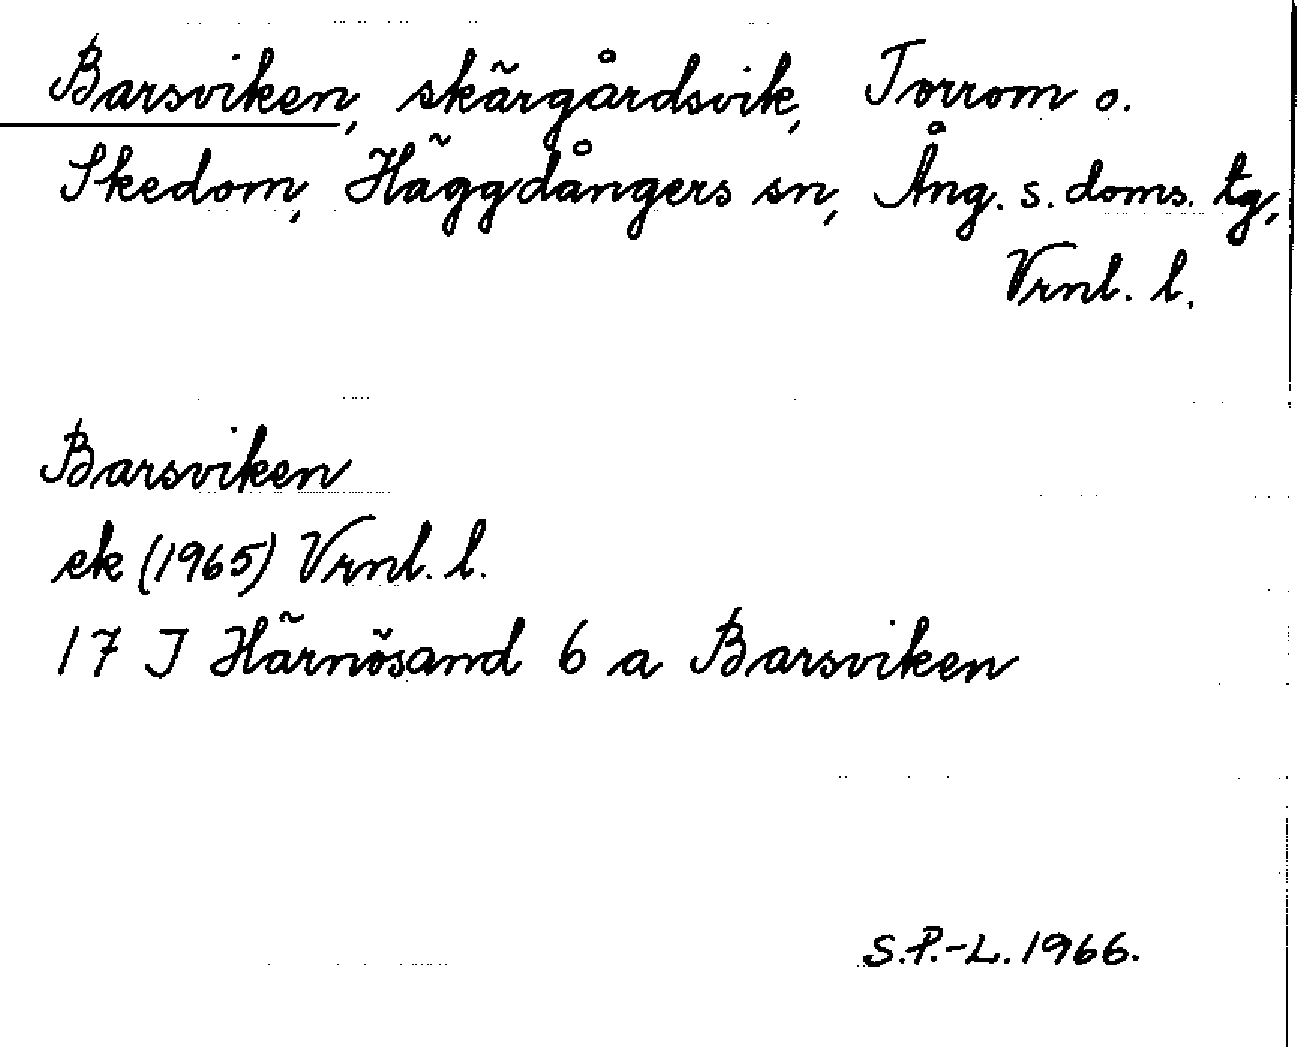 Barsviken, skärgårdsvik, Torrom o.
Skedom, Häggdångers sn, Ång. s. doms. tg,
Vrnl. l.
Barsviken
ek (1965) Vrnl. l.
17 J Härnösand 6 a Barsviken
S.P.-L. 1966.